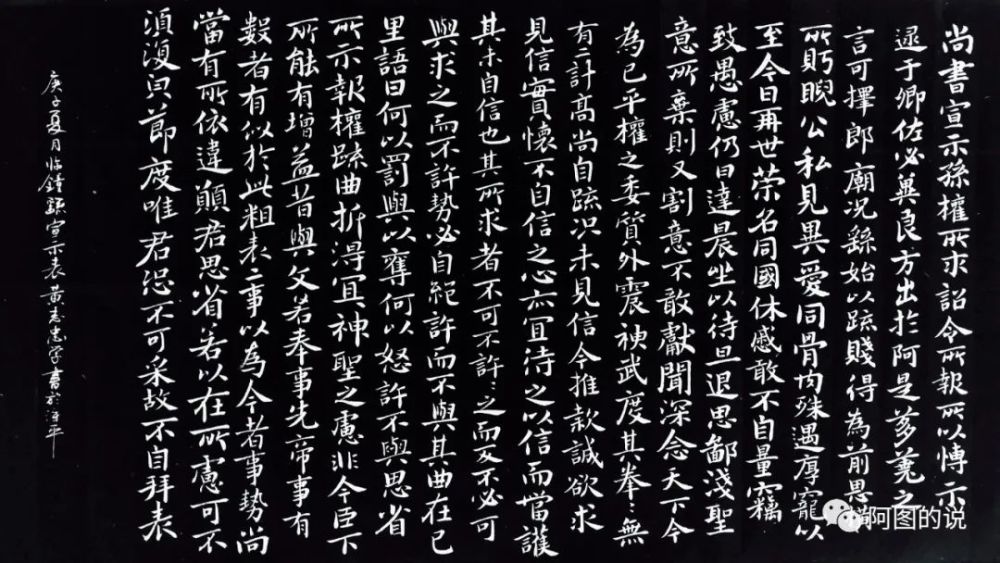 尚書宣示孫權所求詔令所報所以博示
逮于卿佐必冀良方出於阿是芻蕘之
言可擇郎廟況繇始以疏賤得為前恩橫
所眄睨公私見異愛同骨肉殊遇厚寵以
至今日再世榮名同國休慼敢不自量竊
致愚慮仍日達晨坐以待旦退思鄙淺聖
意所棄則又割意不敢獻聞深念天下今
為已平權之委質外震神武度其拳〻無
有二計高尚自疏況未見信今推款誠欲求
見信實懷不自信之心亦宜待之以信而當護
其未自信也其所求者不可不許〻之而反不必可
與求之而不許勢必自絕許而不與其曲在己
里語曰何以罰與以奪何以怒許不與思省
所示報權疏曲折得宜神聖之慮非今臣下
所能有增益昔與文若奉事先帝事有
數者有似於此粗表二事以為今者事勢尚
當有所依違願君思省若以在所慮可不
須復皃節度唯君恐不可采故不自拜表
庚子夏月临鍾繇宣示表 黄志忠学書於 平
阿图的说